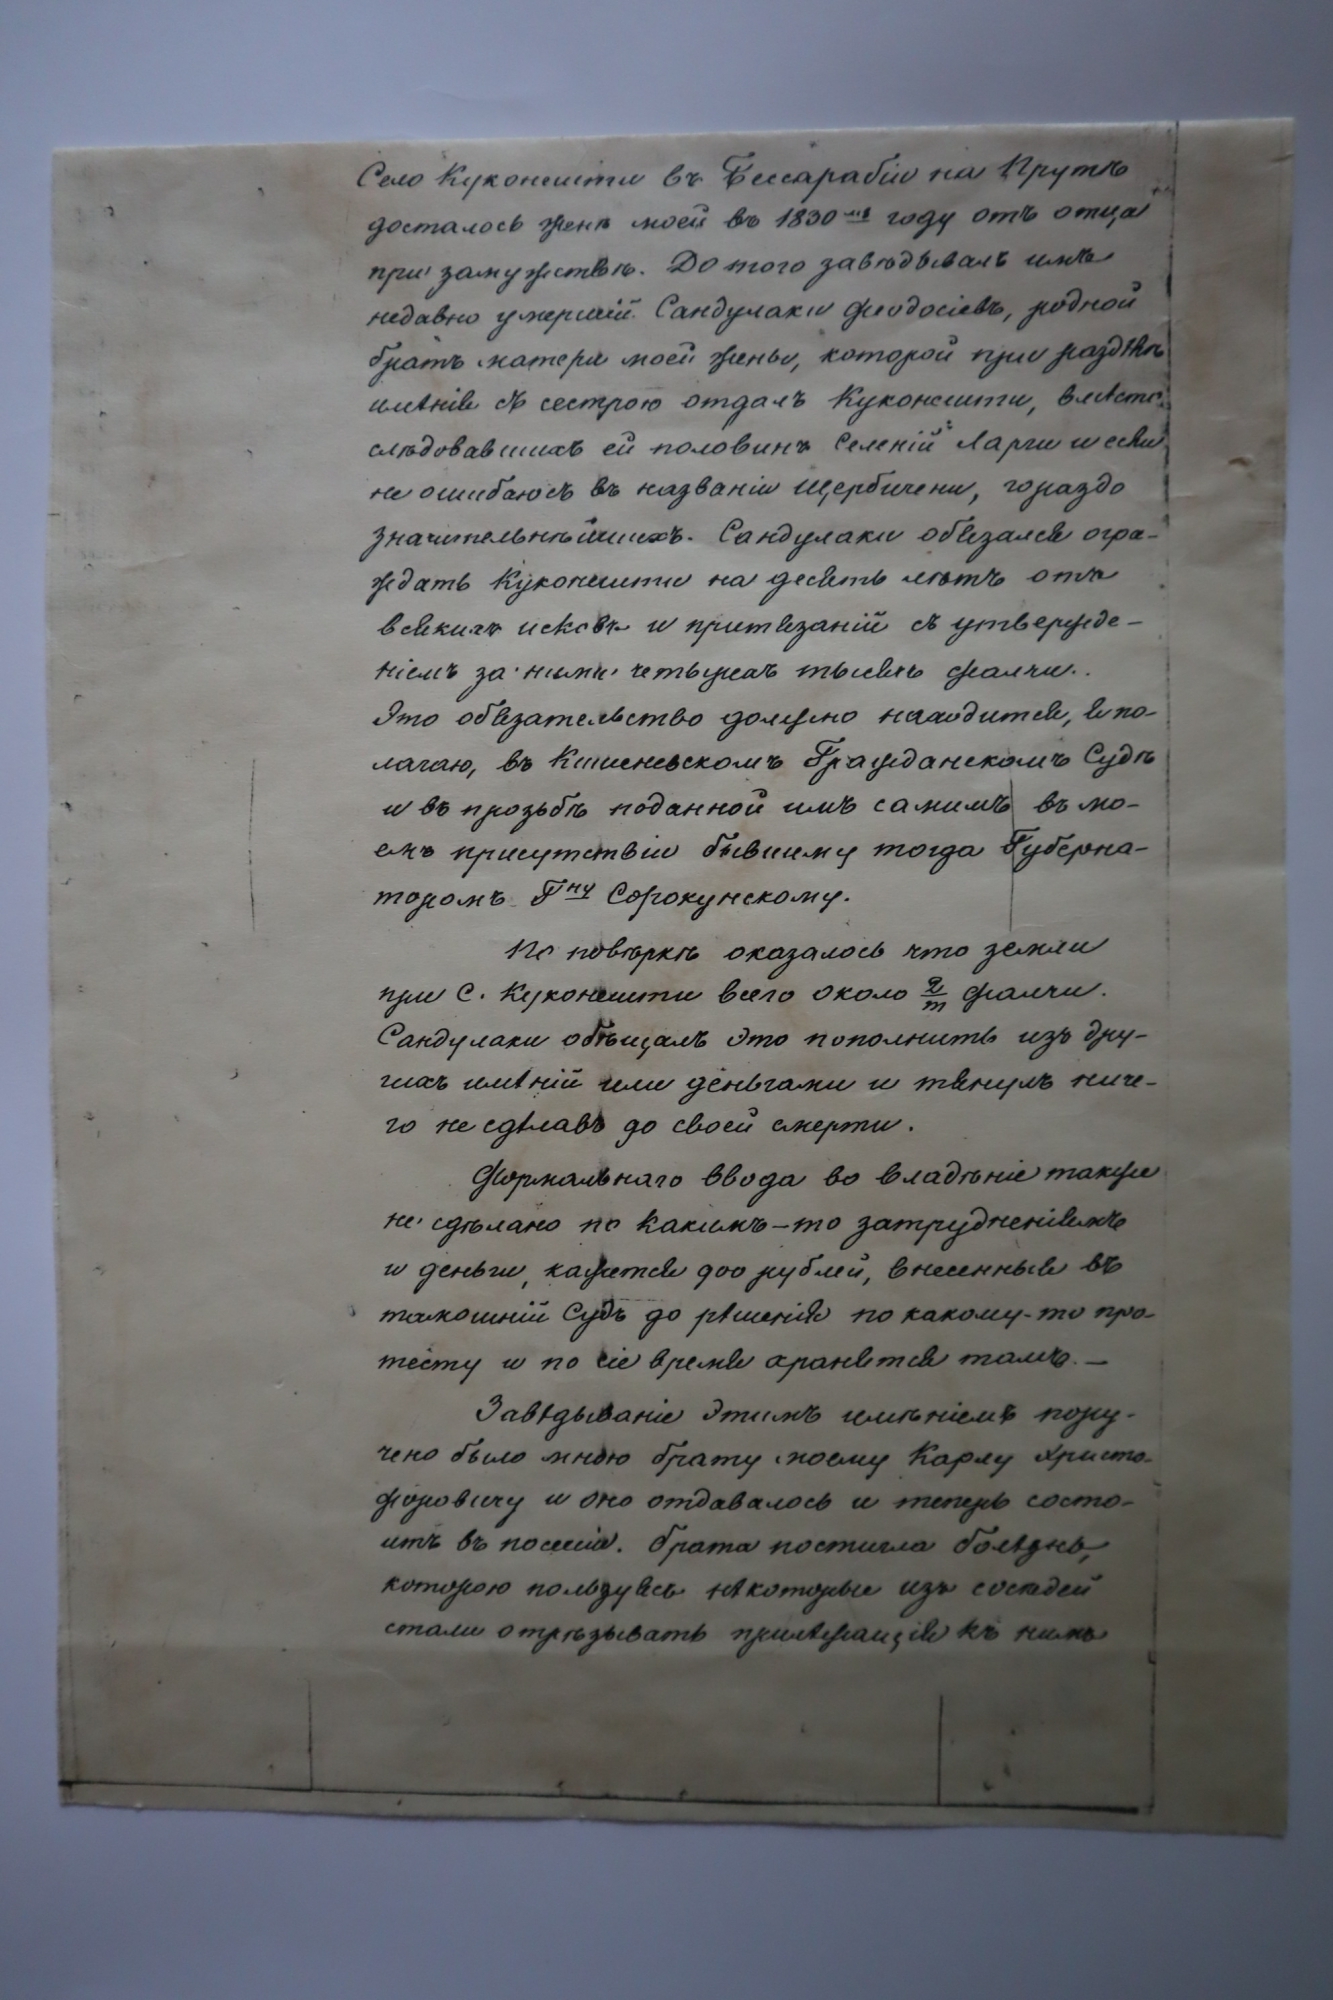 Село Куконешти въ Бессарабіи на Прутѣ
досталось женѣ моей въ 1830мъ году отъ отца
при замужествѣ. До того завѣдывалъ имъ
недавно умершій Сандулаки Феодосіевъ, родной
братъ матери моей жены, которой при раздѣлѣ
имѣнія съ сестрою отдалъ Куконешти, вмѣсто
слѣдовавшихъ ей половинъ Селеній: Ларги и если
не ошибаюсь въ названіи Щербичени, гораздо
значительнѣйшихъ. Сандулаки обязался огра-
ждать Куконешти на десять лѣтъ отъ
всякихъ исковъ и притязаній съ утвержде-
ніемъ за ними четырехъ тысячь фалчи.
Это обязательство должно находится, я по-
лагаю, въ Кишеневскомъ Гражданскомъ Судѣ
и въ прозьбѣ поданной имъ самимъ въ мо-
емъ присутствіи бывшему тогда Губерна-
торомъ Гну Сорокунскому.
По повѣркѣ оказалось что земли
при С. Куконешти всего около 2/т фалчи.
Сандулаки обѣщалъ это пополнить изъ дру-
гихъ имѣній или деньгами и тянулъ ниче-
го не сдѣлавъ до своей смерти.
Формальнаго ввода во владѣніе также
не сдѣлано по какимъ-то затрудненіямъ
и деньги, кажется 900 рублей, внесенныя въ
тамошній Судъ до рѣшенія по какому-то про-
тесту и по сіе время хранятся тамъ. —
Завѣдываніе этимъ имѣніемъ пору-
чено было мною брату моему Карлу Христо-
форовичу и оно отдавалось и теперь состо-
итъ въ посессіи. Брата постигла болѣзнь,
которою пользуясь нѣкоторые изъ сосѣдей
стали отрѣзывать прилежащія къ нимъ